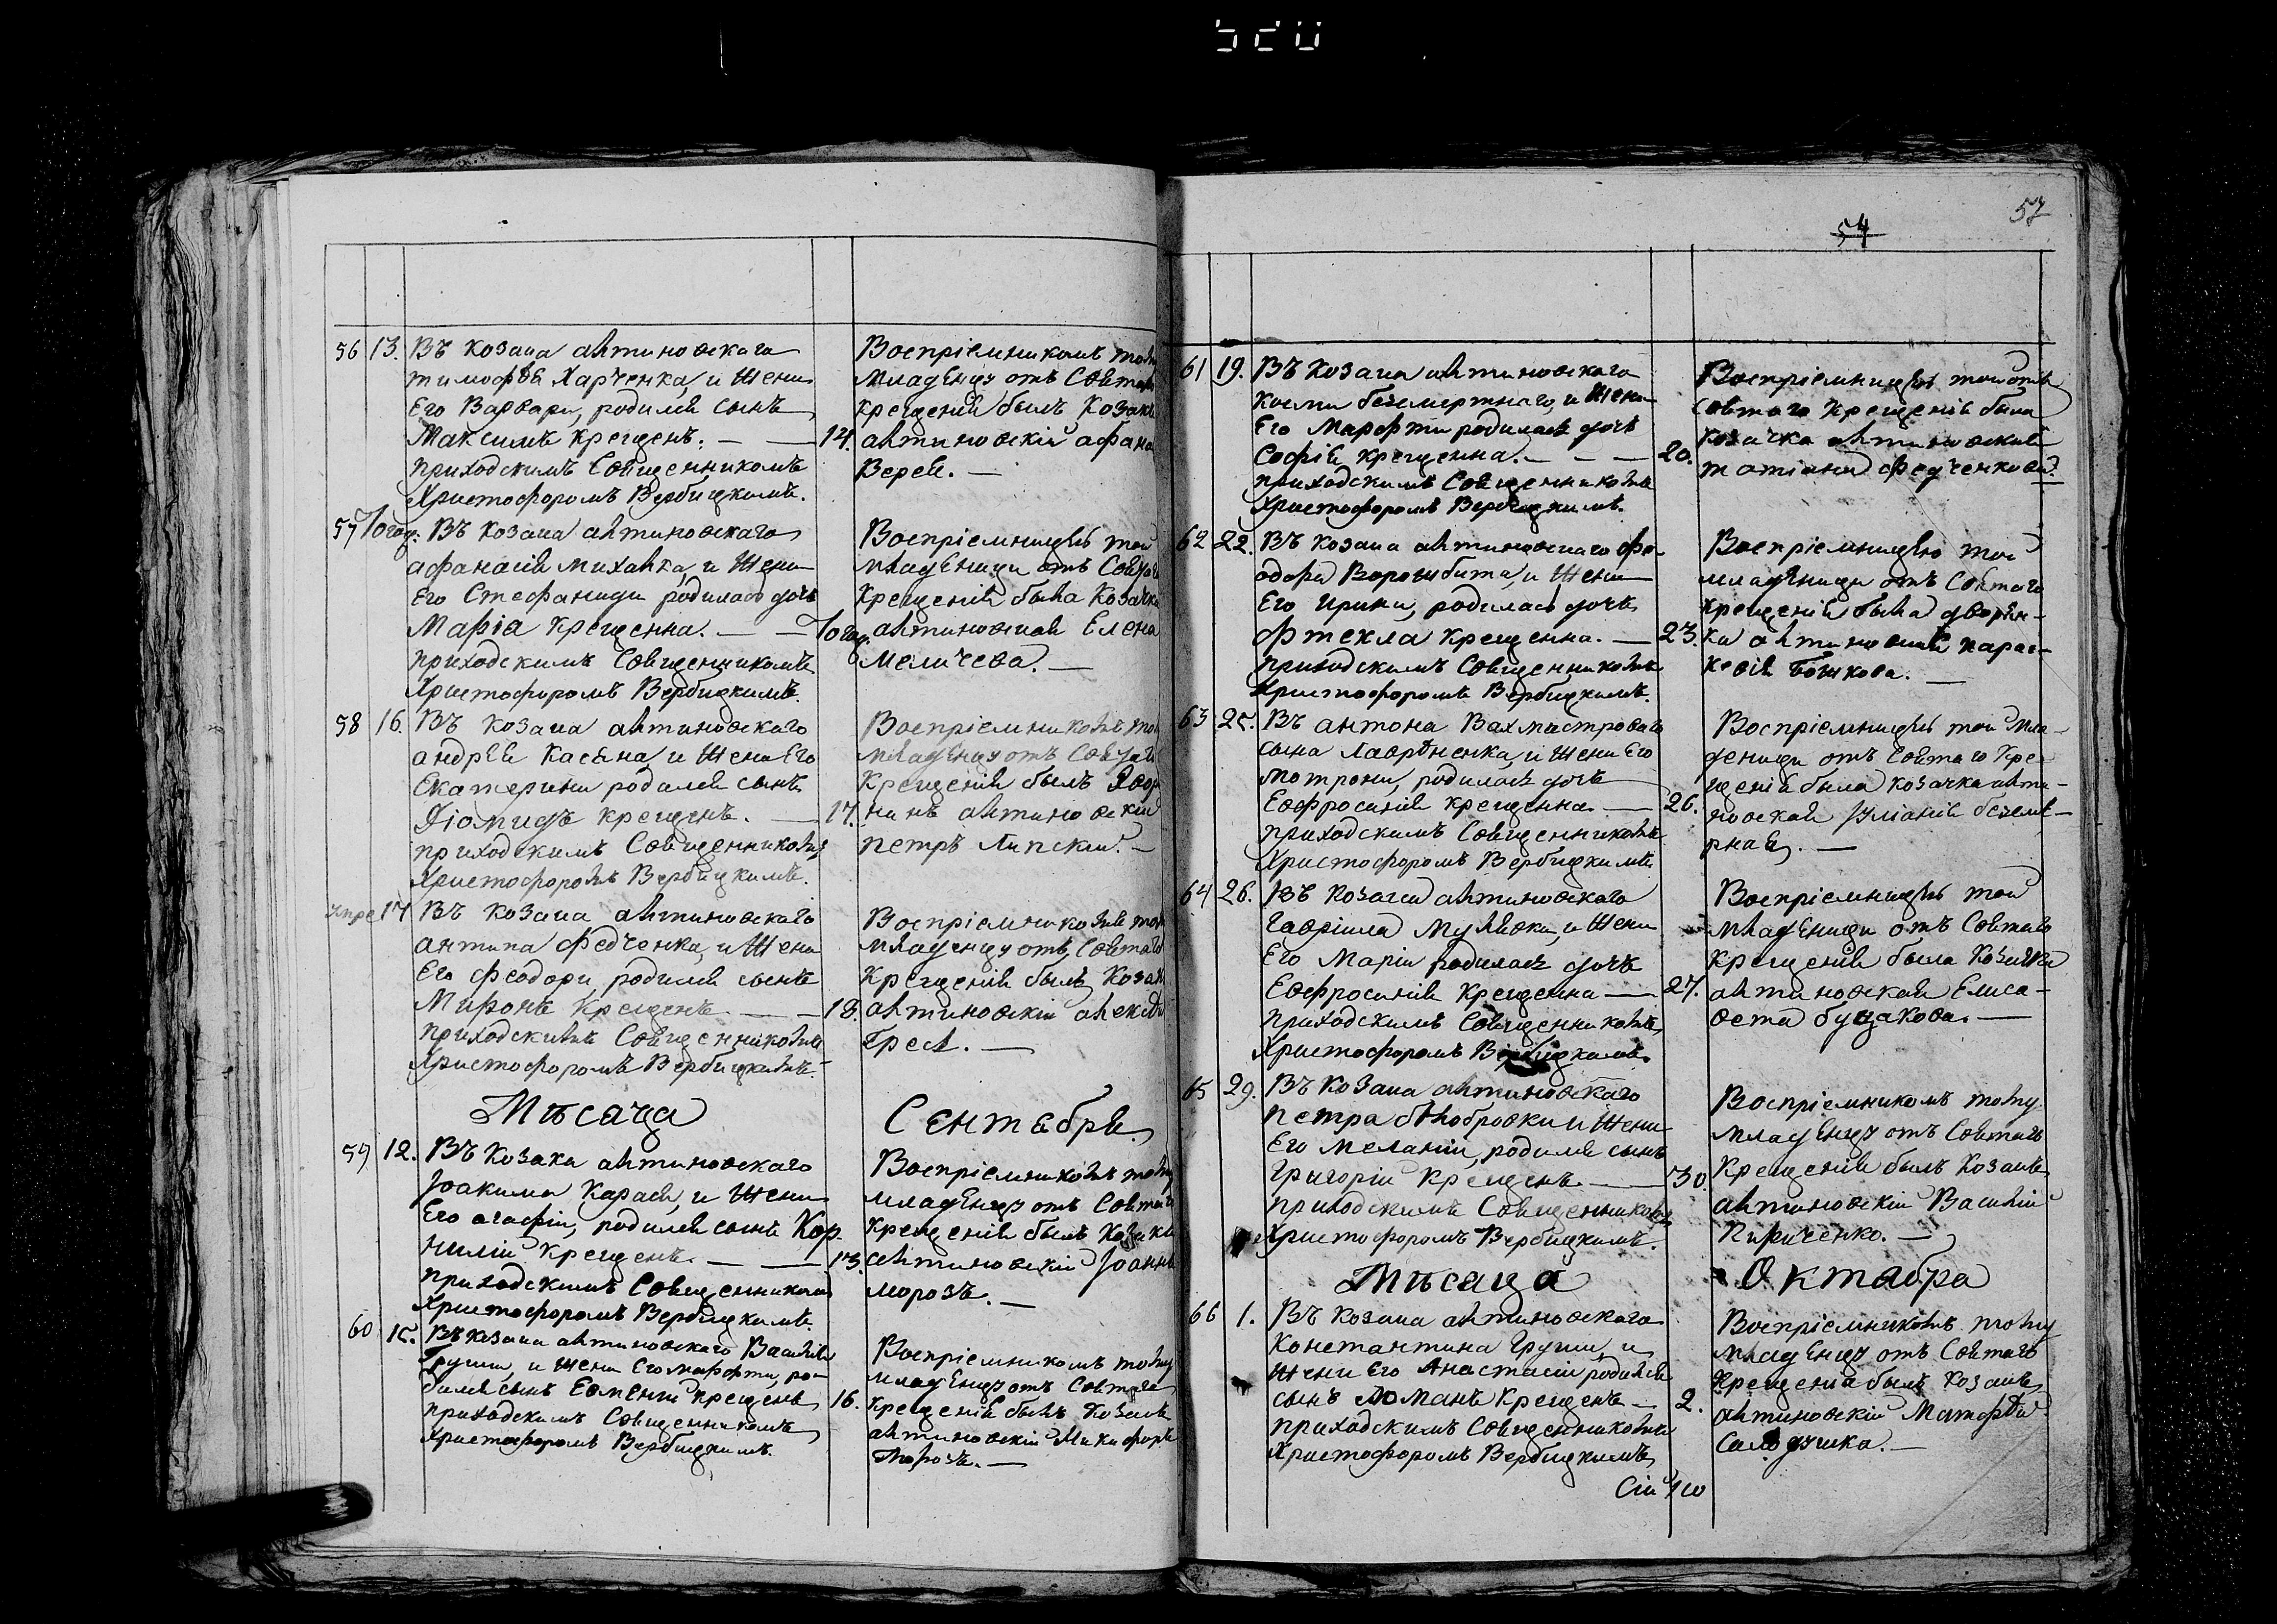 57
54
56 13. Въ козака антиновскаго
тимофѣя Харченка, и жени
Его Варвари, родился сынъ
Максимъ крещенъ. — — 14.
приходскимъ Священникомъ
Христофоромъ Вербицкимъ.
Воспріемникомъ
младенцу отъ
крещенія былъ Козакъ
антиновскій
Верея. —
57 Тогож. Въ козака антиновскаго
афанасія михайка, и жени
Его Стефаниди родилась дочь
Марія крещенна. — — Тогож
приходскимъ Священникомъ
Христофоромъ Вербицкимъ.
Воспріемницею той
младеници отъ
Крещенія была Козачка
антиновская Елена
—
58 16. Въ козака антиновскаго
андрея Касяна, и жени Его
Екатерини родился сынъ
Діомидъ крещенъ. — 17.
приходскимъ Священникомъ
Христофоромъ Вербицкимъ.
Воспріемникомъ
младенцу отъ
Крещенія былъ Двор
нинъ антиновскій
петръ Липскій. —
17 Въ козака антиновскаго
антипа Федченка, и жени
Его феодори, родился сынъ
Миронъ Крещенъ. — — 18.
приходскимъ Священникомъ
Христофоромъ Вербицкимъ.
Воспріемникомъ
младенцу отъ Святаго
Крещенія былъ Козакъ
антиновскій
—
Мѣсяца Сентября
59 12. Въ козака антиновскаго
Іоакима Карася, и жени
Его агафіи, родился сынъ Кор-
нилій крещенъ. — — 13.
приходскимъ Священникомъ
Христофоромъ Вербицкимъ.
Воспріемникомъ тому
младенцу отъ Святаго
крещенія былъ Козакъ
антиновскій Іоаннъ
морозъ. —
60 15. Въ козака антиновскаго Василія
Груши, и жени Его марфти, ро-
дился сынъ Евменій крещенъ 16.
приходскимъ Священникомъ
Христофоромъ Вербицкимъ.
Воспріемникомъ тому
младенцу отъ Святаго
крещенія былъ Козакъ
антиновскій Никифоръ
Морозъ. —
61 19. Въ козака антиновскаго
Косми безсмертнаго, и жени
Его Марфти родилась дочь
Софія крещенна. — — — 20.
приходскимъ Священникомъ
Христофоромъ Вербицкимъ.
Воспріемницею той отъ
Святаго Крещенія была
козачка антиновская
татіана Федченкова.
62 22. Въ козака антиновскаго фе-
одора Ворожбита, и жени
Его Ирини, родилась дочь
Фтекла крещенна. — 23.
приходскимъ Священникомъ
Христофоромъ Вербицкимъ.
Воспріемницею той
младеници отъ Святаго
крещенія была дворян-
ка антиновская парас-
кевія Божкова. —
63 25. Въ антона Вахмистроваго
сына Лаврѣненка, и жени Его
мотрони, родилась дочь
Евфросинія крещенна. — 26.
приходскимъ Священникомъ
Христофоромъ Вербицкимъ.
Воспріемницею той мла-
деници отъ Святаго Кре-
щенія была козачка анти-
новская Іуліанія безсме-
рная. —
64 26. Въ козака антиновскаго
Гавріила Мулявки, и жени
Его Маріи родилась дочь
Евфросинія Крещенна — 27.
приходскимъ Священникомъ
Христофоромъ Вербицкимъ.
Воспріемницею той
младеници отъ Святаго
крещенія была Козачка
антиновская Елиса-
вета буцакова. —
65 29. Въ Козака антиновскаго
петра бѣлобровки и жени
Его меланіи, родился сынъ
Григорій Крещенъ. — 30.
приходскимъ Священникомъ
Христофоромъ Вербицкимъ.
Воспріемникомъ тому
младенцу отъ Святаго
Крещенія былъ Козакъ
антиновскій Василій
Кириченко. —
Мѣсяца Октабра
66 1. Въ Козака антиновскаго
Константина Груши и
жени Его Анастасіи родился
сынъ Романъ Крещенъ — 2.
приходскимъ Священникомъ
Христофоромъ Вербицкимъ
Воспріемникомъ тому
младенцу отъ Святаго
Крещенія былъ козакъ
антиновскій Матфѣй
Солодушка. —
Сію